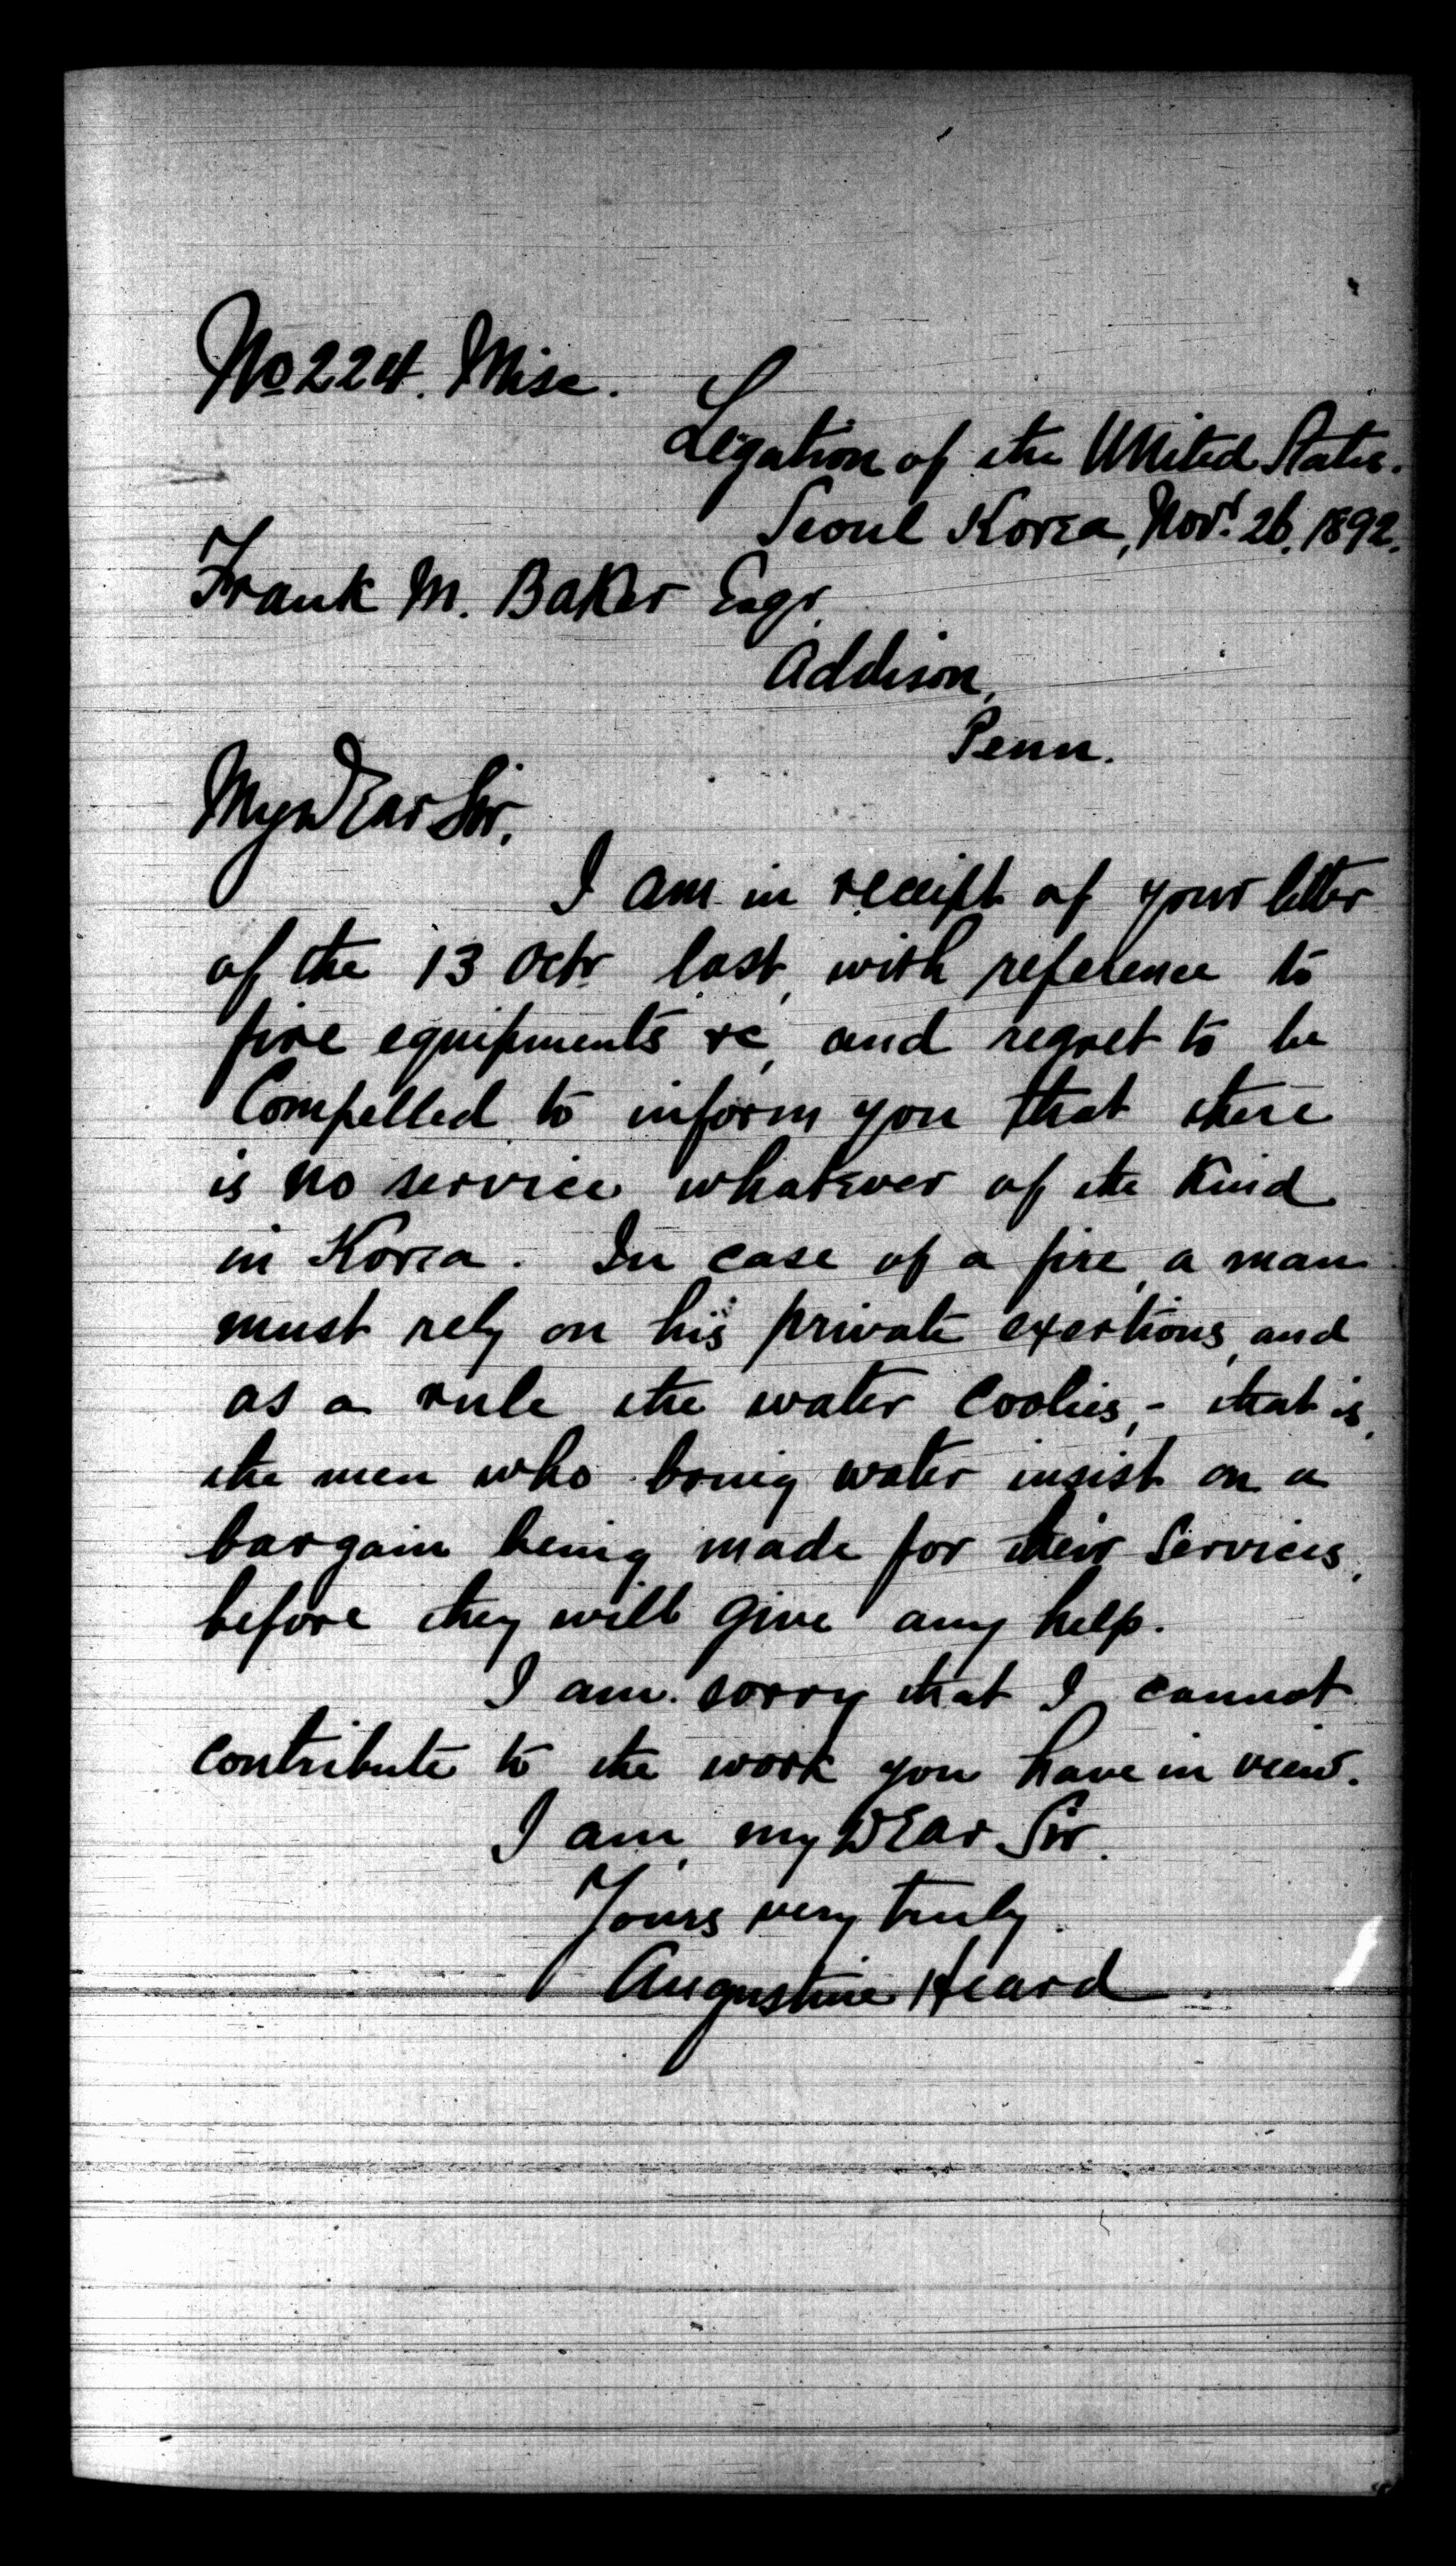 No 224. Misc.
Legation of the United States.
Seoul Korea, Novr. 26. 1892.
Frank M. Baker Esqr.
Addison,
Penn.
My dear Sir,
I am in receipt of your letter
of the 13 Octr last, with reference to
fire equipments &c, and regret to be
Compelled to inform you that there
is no service whatever of the Kind
in Korea. In case of a fire, a man
must rely on his private exertions, and
as a rule the water Coolies, - that is,
the men who bring water insist on a
bargain being made for their Services,
before they will give any help.
I am sorry that I cannot
contribute to the work you have in view.
I am, my Dear Sir,
Yours very truly
Augustine Heard